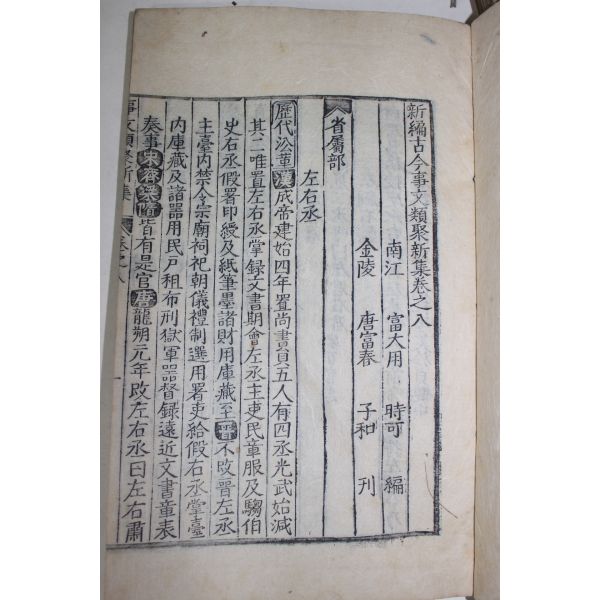 新編古今事文類聚新集卷之八
南江 富大用 時可 編
金陵 唐富春 子和 刊
省屬部
左右丞
歷代沿革漢成帝建始四年置尚書員五人有四丞光武始減
其二唯置左右丞掌録文書期會左丞主吏民章服及騶伯
史右丞假署印綬及紙筆墨諸財用庫藏至晉不改晉左丞
主臺内禁令宗廟祠祀朝儀禮制選用署吏給假右丞掌臺
内庫藏及諸器用民戸租布刑獄軍器督録遠近文書章表
奏事宋齊梁陳皆有是官唐龍朔元年改左右丞曰左右肅
事文類聚新集 卷之八